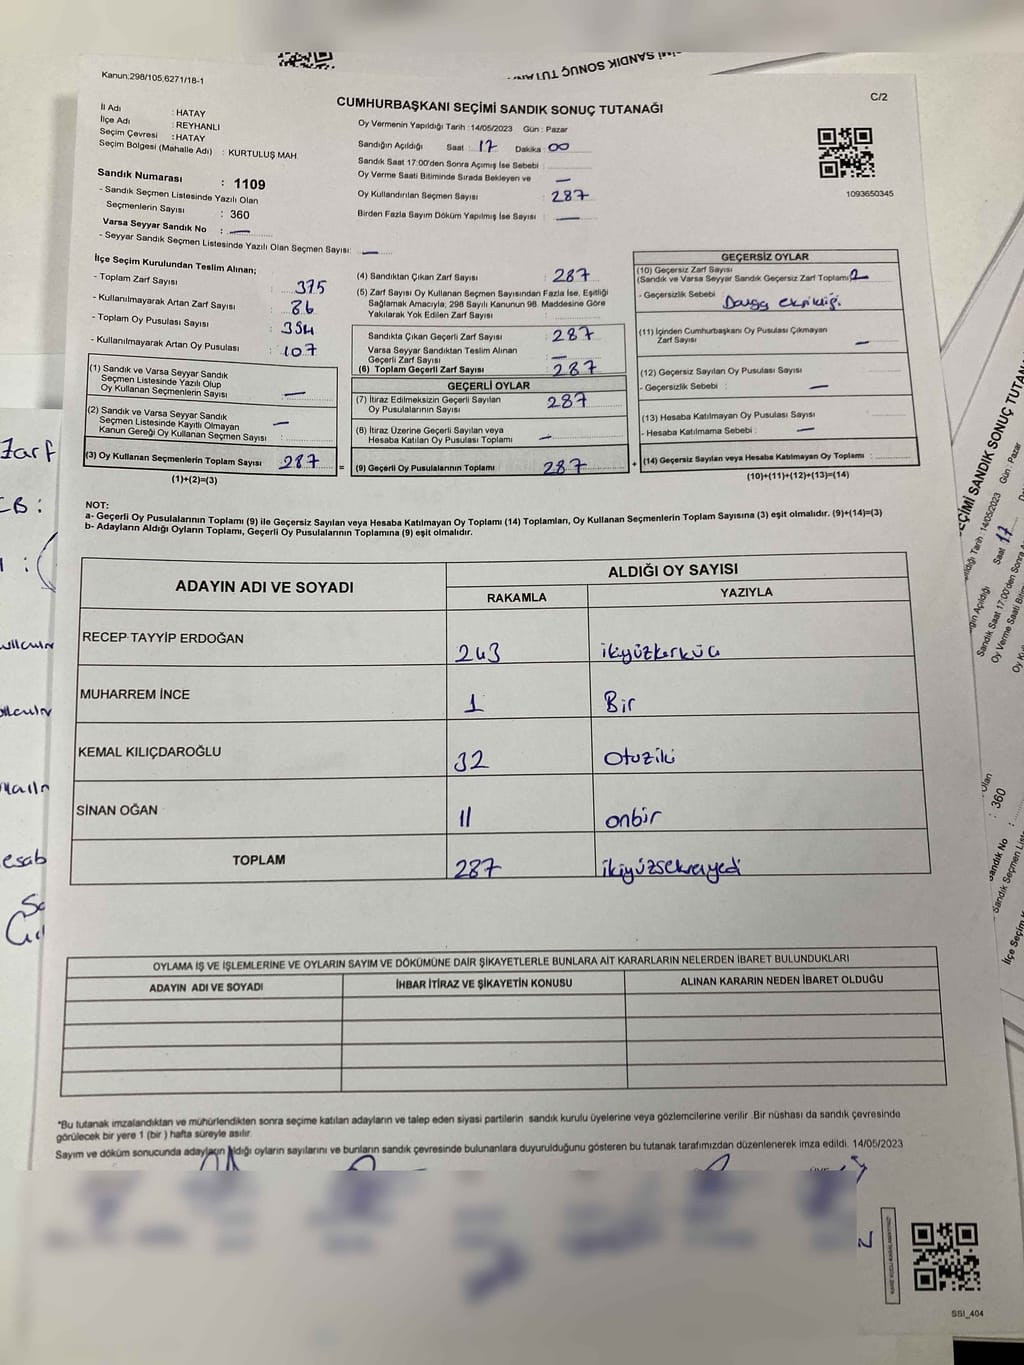 Kanun:298/105,6271/18-1
C/2
CUMHURBAŞKANI SEÇİMİ SANDIK SONUÇ TUTANAĞI
İl Adı : HATAY
İlçe Adı : REYHANLI
Seçim Çevresi : HATAY
Seçim Bölgesi (Mahalle Adı) : KURTULUŞ MAH
Sandık Numarası : 1109
- Sandık Seçmen Listesinde Yazılı Olan
Seçmenlerin Sayısı : 360
Varsa Seyyar Sandık No : —
- Seyyar Sandık Seçmen Listesinde Yazılı Olan Seçmen Sayısı: —
Oy Vermenin Yapıldığı Tarih : 14/05/2023 Gün : Pazar
Sandığın Açıldığı Saat : 17 Dakika : 00
Sandık Saat 17:00'den Sonra Açımış İse Sebebi :
Oy Verme Saati Bitiminde Sırada Bekleyen ve —
Oy Kullandırılan Seçmen Sayısı : 287
Birden Fazla Sayım Döküm Yapılmış İse Sayısı : —
1093650345
İlçe Seçim Kurulundan Teslim Alınan;
- Toplam Zarf Sayısı : 375
- Kullanılmayarak Artan Zarf Sayısı : 86
- Toplam Oy Pusulası Sayısı : 394
- Kullanılmayarak Artan Oy Pusulası : 107
(1) Sandık ve Varsa Seyyar Sandık
Seçmen Listesinde Yazılı Olup
Oy Kullanan Seçmenlerin Sayısı : —
(2) Sandık ve Varsa Seyyar Sandık
Seçmen Listesinde Kayıtlı Olmayan
Kanun Gereği Oy Kullanan Seçmen Sayısı : —
(3) Oy Kullanan Seçmenlerin Toplam Sayısı : 287
(1)+(2)=(3)
(4) Sandıktan Çıkan Zarf Sayısı : 287
(5) Zarf Sayısı Oy Kullanan Seçmen Sayısından Fazla İse, Eşitliği
Sağlamak Amacıyla; 298 Sayılı Kanunun 98. Maddesine Göre
Yakılarak Yok Edilen Zarf Sayısı :
Sandıkta Çıkan Geçerli Zarf Sayısı : 287
Varsa Seyyar Sandıktan Teslim Alınan
Geçerli Zarf Sayısı : —
(6) Toplam Geçerli Zarf Sayısı : 287
GEÇERLİ OYLAR
(7) İtiraz Edilmeksizin Geçerli Sayılan
Oy Pusulalarının Sayısı : 287
(8) İtiraz Üzerine Geçerli Sayılan veya
Hesaba Katılan Oy Pusulası Toplamı : —
= (9) Geçerli Oy Pusulalarının Toplamı : 287
GEÇERSİZ OYLAR
(10) Geçersiz Zarf Sayısı
(Sandık ve Varsa Seyyar Sandık Geçersiz Zarf Toplamı) 2
- Geçersizlik Sebebi :
(11) İçinden Cumhurbaşkanı Oy Pusulası Çıkmayan
Zarf Sayısı : —
(12) Geçersiz Sayılan Oy Pusulası Sayısı :
- Geçersizlik Sebebi : —
(13) Hesaba Katılmayan Oy Pusulası Sayısı :
- Hesaba Katılmama Sebebi : —
+ (14) Geçersiz Sayılan veya Hesaba Katılmayan Oy Toplamı :
(10)+(11)+(12)+(13)=(14)
NOT:
a- Geçerli Oy Pusulalarının Toplamı (9) ile Geçersiz Sayılan veya Hesaba Katılmayan Oy Toplamı (14) Toplamları, Oy Kullanan Seçmenlerin Toplam Sayısına (3) eşit olmalıdır. (9)+(14)=(3)
b- Adayların Aldığı Oyların Toplamı, Geçerli Oy Pusulalarının Toplamına (9) eşit olmalıdır.
ADAYIN ADI VE SOYADI ALDIĞI OY SAYISI
RAKAMLA YAZIYLA
RECEP TAYYİP ERDOĞAN 243 ikiyüzkırküç
MUHARREM İNCE 1 Bir
KEMAL KILIÇDAROĞLU 32 Otuziki
SİNAN OĞAN 11 onbir
TOPLAM 287 ikiyüzseksenyedi
OYLAMA İŞ VE İŞLEMLERİNE VE OYLARIN SAYIM VE DÖKÜMÜNE DAİR ŞİKAYETLERLE BUNLARA AİT KARARLARIN NELERDEN İBARET BULUNDUKLARI
ADAYIN ADI VE SOYADI İHBAR İTİRAZ VE ŞİKAYETİN KONUSU ALINAN KARARIN NEDEN İBARET OLDUĞU
*Bu tutanak imzalandıktan ve mühürlendikten sonra seçime katılan adayların ve talep eden siyasi partilerin sandık kurulu üyelerine veya gözlemcilerine verilir .Bir nüshası da sandık çevresinde
görülecek bir yere 1 (bir ) hafta süreyle asılır.
Sayım ve döküm sonucunda adayların aldığı oyların sayılarını ve bunların sandık çevresinde bulunanlara duyurulduğunu gösteren bu tutanak tarafımızdan düzenlenerek imza edildi. 14/05/2023
SSI_404